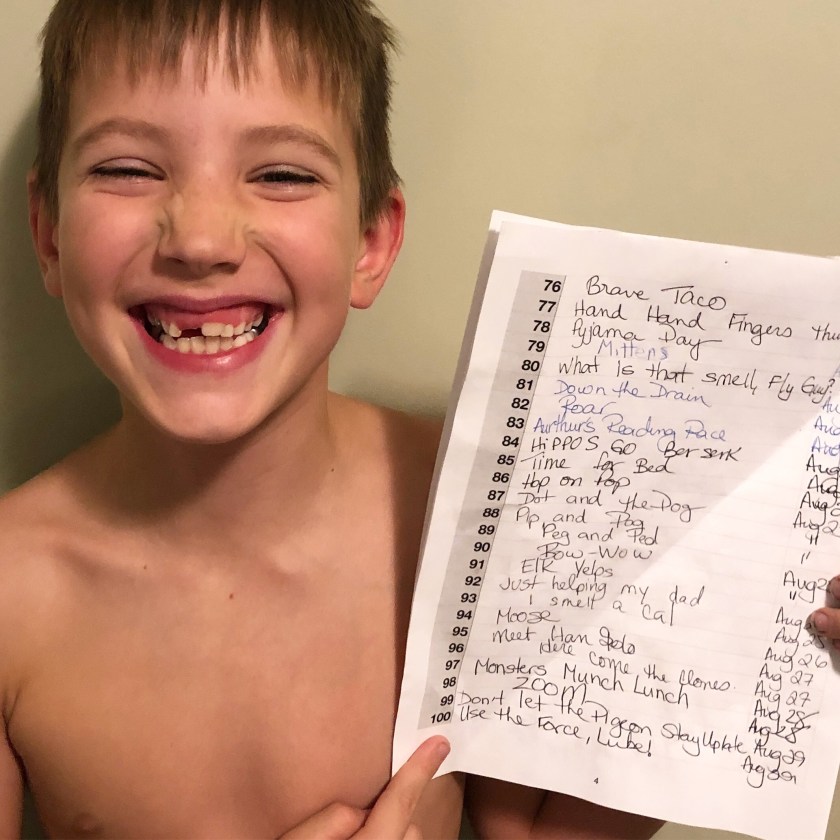 76 Brave Taco
77 Hand Hand Fingers
78 Pyjama Day
79 Mittens
80 What is that smell, Fly Guy?
81 Down the Drain
82 Roar
83 Aurthur's Reading Race Aug
84 HiPPOS GO Berserk Aug
85 Time for Bed Aug
86 Hop on top Aug
87 Dot and the Dog Aug 2
88 Pip and Pog "
89 Peg and Ped "
90 Bow-Wow
91 Elk Yelps Aug 2
92 Just helping my dad "
93 I smelt a Cat Aug
94 Moose Aug 25
95 Meet Han Solo Aug 26
96 Here come the Clones. Aug 27
97 Monsters Munch Lunch Aug 27
98 ZOOM Aug 28
99 Don't let the Pigeon Stay Up late Aug 29
100 Use the Force, Luke!
4